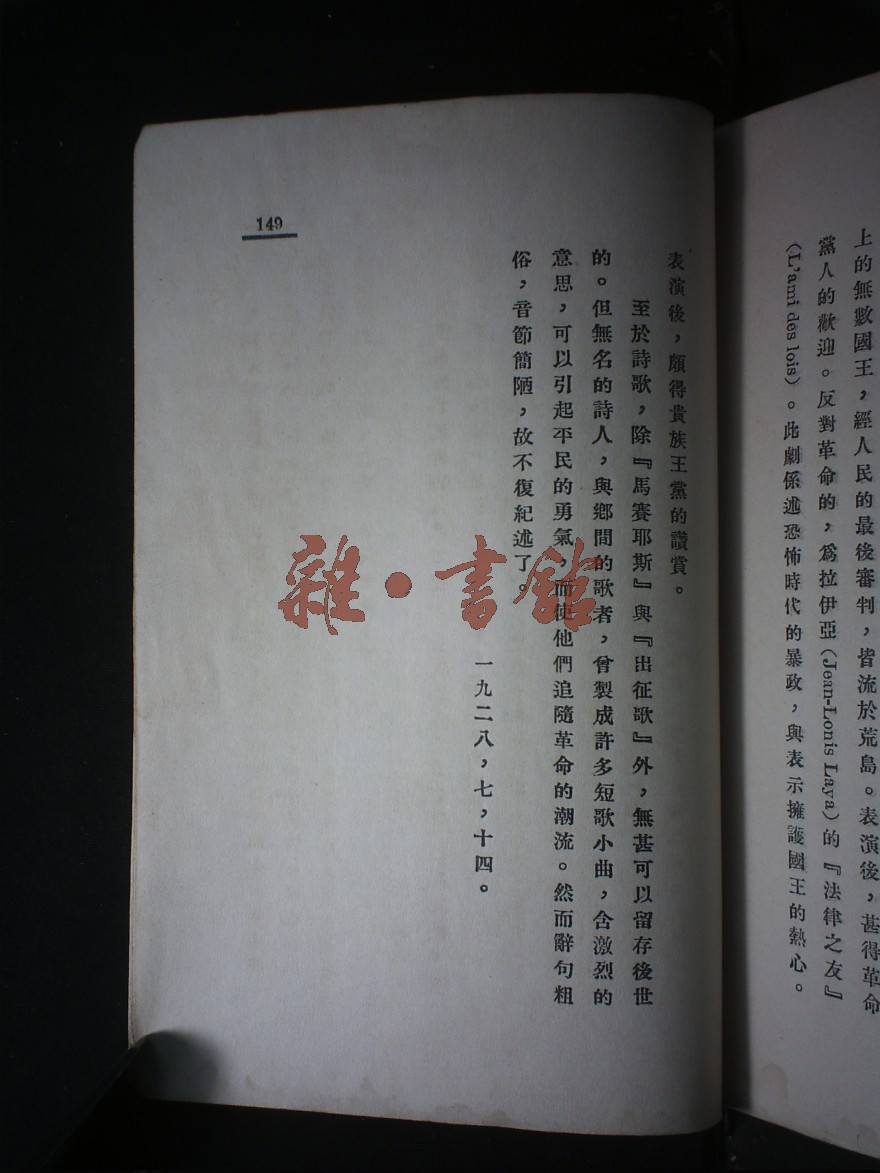 上的無數國王，經人民的最後審判，皆流於荒島。表演後，甚得革命
黨人的歡迎。反對革命的，爲拉伊亞(Jean-Lonis Laya)的『法律之友』
(L'ami des lois)。此劇係述恐怖時代的暴政，與表示擁護國王的熱心。
表演後，頗得貴族王黨的讚賞。
至於詩歌，除『馬賽耶斯』與『出征歌』外，無甚可以留存後世
的。但無名的詩人，與鄉間的歌者，曾製成許多短歌小曲，含激烈的
意思，可以引起平民的勇氣，而使他們追隨革命的潮流。然而辭句粗
俗，音節簡陋，故不復紀述了。
一九二八，七，十四。
149
雜·書館